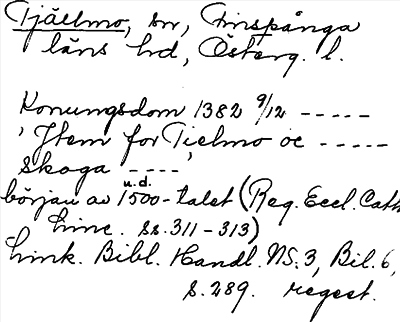 Tjällmo, sn, Finspånga
läns hd, Österg. l.
Konungsdom 1382 9/12 -----
, Jtem for Tielmo oc -----
Skoga ----,
u.d.
början av 1500-talet (Reg. Eccl. Cath
Linc. ss. 311-313)
Link. Bibl. Handl. NS. 3, Bil. 6,
s. 289. regest.